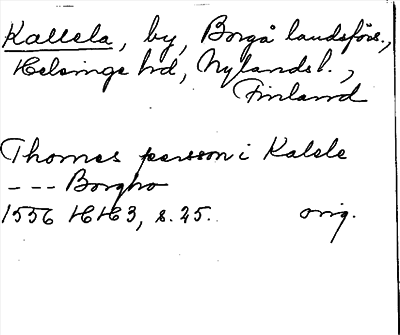 Kallela, by, Borgå landsförs.,
Helsinge hd, Nylands l.,
Finland
Thomes persson i Kalele
--- Borgho
1556 HH3, s. 25. orig.